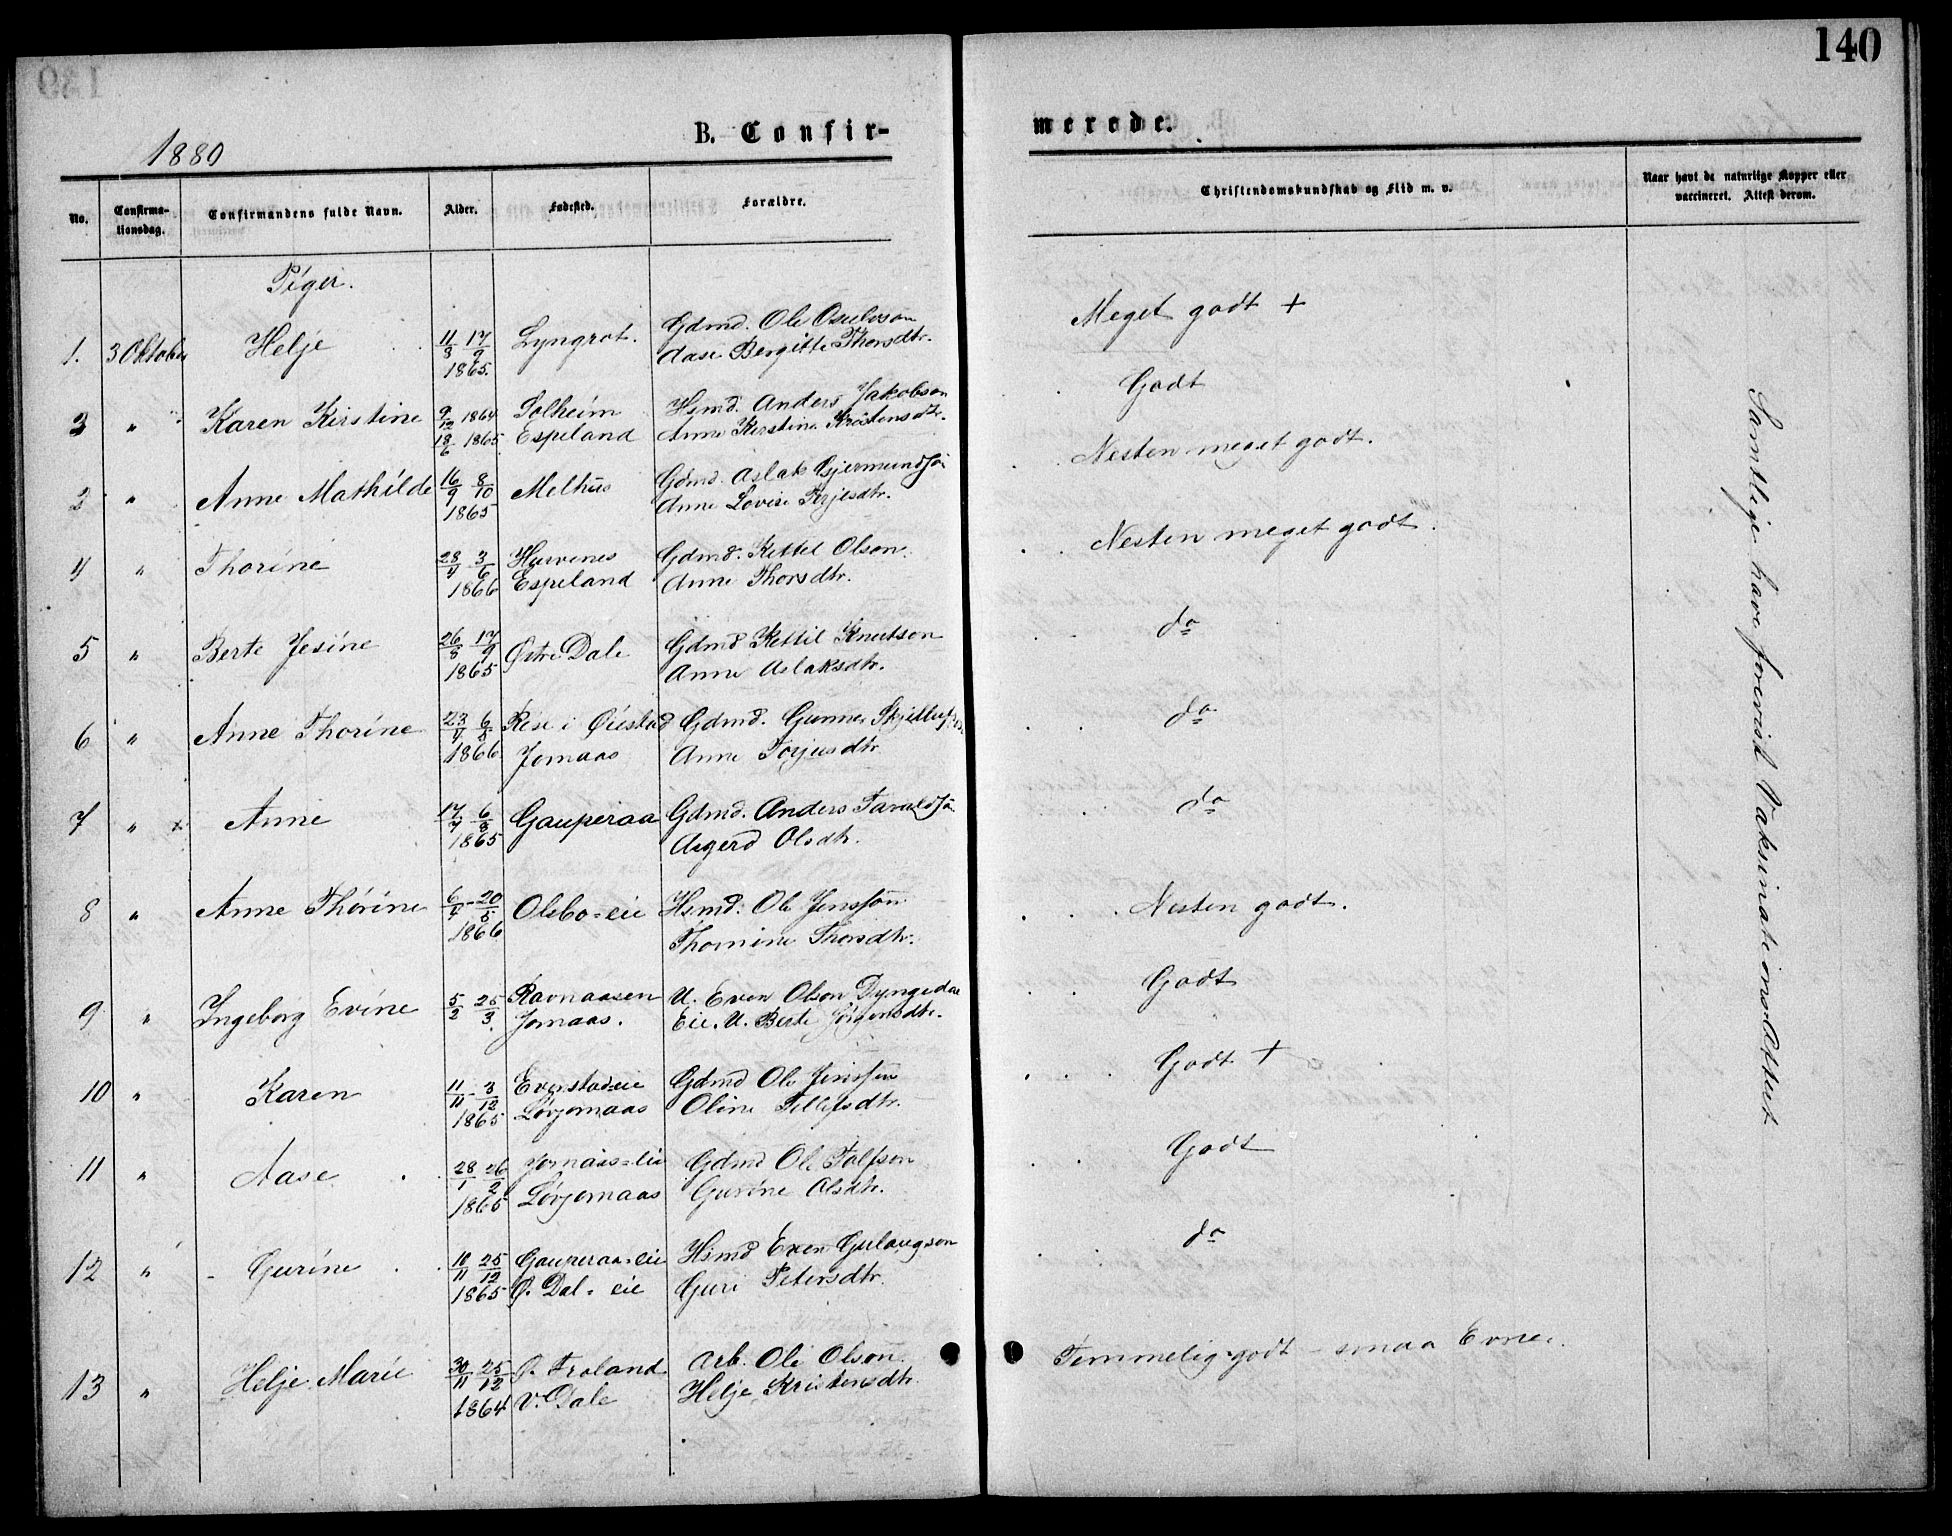 140
1880
B. Confir-
merede.
No.
Confirma-
tionsdag.
Confirmandens fulde Navn.
Alder.
Fødested.
Forældre.
Christendomskundskab og Flid m. v.
Naar havt de naturlige Kopper eller
vaccineret. Attest derom.
Piger.
1. 3 Oktober Helje 11/8 17/9 1865. Lyngrot. Gdmd. Ole Osulvson
Aase Bergitte Thorsdtr.
Meget godt +
3 " Karen Kirstine 9/12 1864 Solheim Hsmd. Anders Jakobson
18/6 1865 Espeland Anne Kirstine Kristensdtr.
Godt
2 " Anne Mathilde 16/9 8/10 1865 Melhus Gdmd. Aslak Gjermundsøn
Anne Lovise Terjesdtr.
Nesten meget godt.
4 " Thorine 28/4 3/6 1866 Hurvenes Gdmd. Kettel Olson
Espeland Anne Thorsdtr.
Nesten meget godt.
5 " Berte Jesine 26/8 17/9 1865 Østre Dale Gdmd Kettil Knutson
Anne Aslaksdtr.
do
6 " Anne Thorine 23/4 6/5 1866 Rise i Øiestad Gdmd. Gunner
Jomaas Anne Torjusdtr
do
7 " x Anne 17/7 6/8 1865 Gauperaa Gdmd. Anders Taraldsøn
Asgerd Olsdtr.
do
8 " Anne Thorine 6/4 - 20/5 1866 Olsbo=eie Hsmd. Ole Jenssøn
Thomine Thorsdtr.
Nesten godt.
9 " Ingeborg Evine 5/2 25/3 Ravnaasen U. Even Olson Dyngedal
Jomaas. Eie. U. Berte Jørgensdtr.
Godt
10 " Karen 11/11 - 3/12 1865 Evenstad=eie Gdmd Ole Jenssøn
Lørjomaas Oline Tellefsdtr.
Godt +
11 " Aase 28/1 26/2 1865 Jomaas=eie Gdmd Ole Tolfson
Lørjomaas Gurine Olsdtr.
Godt
12 " - Gurine 10/11 25/12 1865 Gauperaa=eie Hsmd Even Gulaugson
Ø. Dal=eie Guri Petersdtr.
do
13 " Helje Marie 30/11 25/12 1864 Ø. Froland Arb. Ole Olson.
V. Dale Helje Kristensdtr.
Temmelig godt - smaa Evner.
Samtlige have forevist Vaksinations=Attest